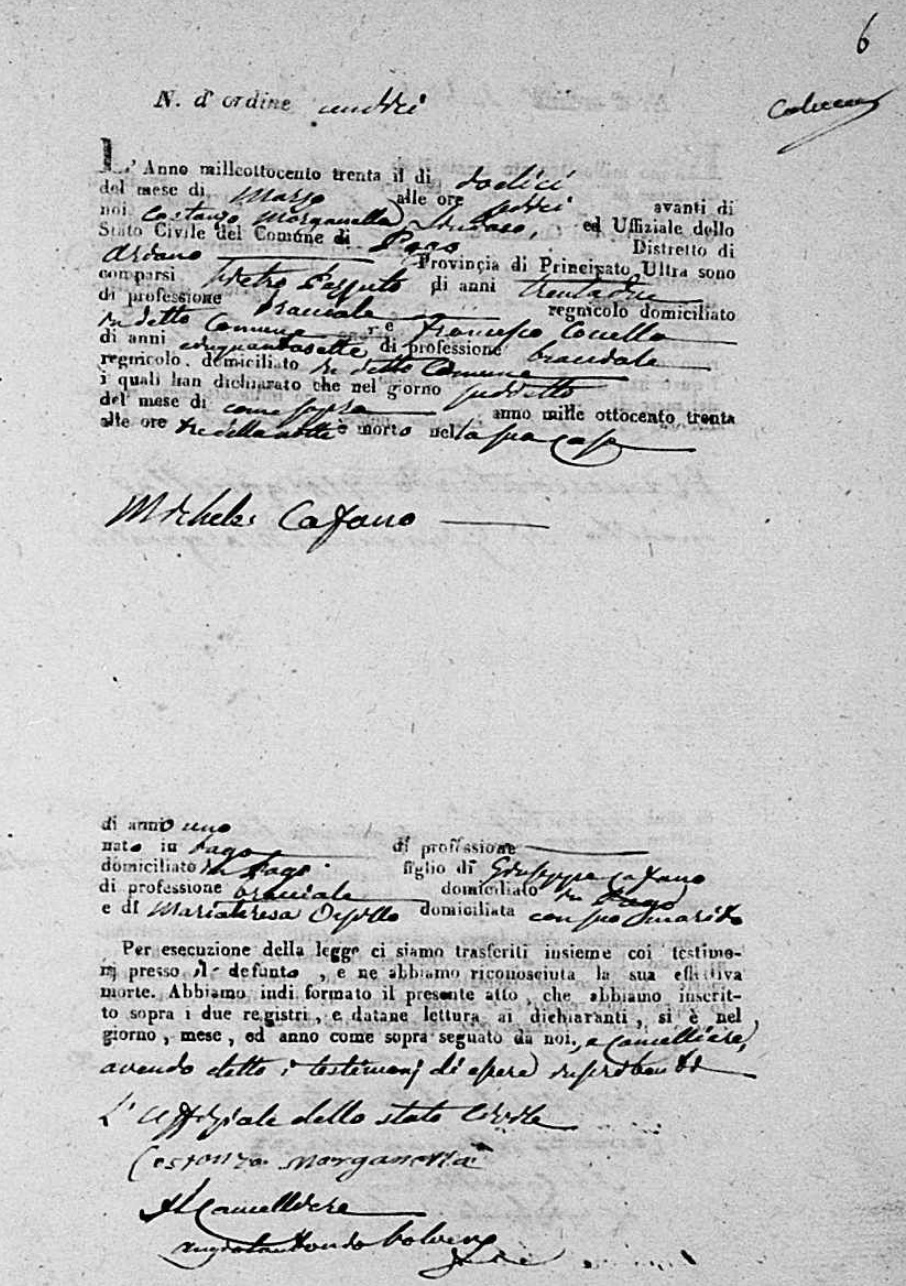 6
N. d' ordine undici
L' Anno milleottocento trenta il di dodici
del mese di Marzo alle ore sedici avanti di
noi Costanzo Morganella Sindaco, ed Uffiziale dello
Stato Civile del Comune di Pago Distretto di
Ariano Provincia di Principato Ultra sono
comparsi Pietro di anni trentadue
di professione bracciale regnicolo domiciliato
in detto Comune e Francesco Conella
di anni cinquantasette di professione bracciale
regnicolo, domiciliato in detto Comune
i quali han dichiarato che nel giorno suddetto
del mese di come sopra anno mille ottocento trenta
alle ore tre della notte è morto nella sua casa
Michele Cafano
di anni uno
nato in Pago di professione
domiciliato in Pago figlio di Giuseppe Cafano
di professione bracciale domiciliato in Pago
e di Mariateresa domiciliata con suo marito
Per esecuzione della legge ci siamo trasferiti insieme coi testimo-
nj presso il defunto, e ne abbiamo riconosciuta la sua effettiva
morte. Abbiamo indi formato il presente atto, che abbiamo inscrit-
to sopra i due registri, e datane lettura ai dichiaranti, si è nel
giorno, mese, ed anno come sopra segnato da noi, e Cancelliere,
avendo detto i testimonj di essere
L' Uffiziale dello stato Civile
Costanzo Morganella
Il Cancelliere